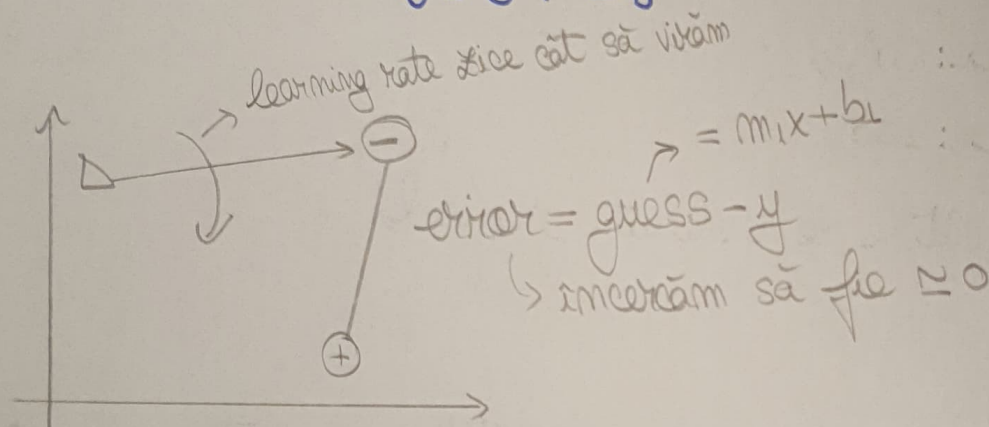 learning rate zice cât să virăm
= m₁x+b₁
error = guess - y
încercăm să fie ≃ 0
-
+